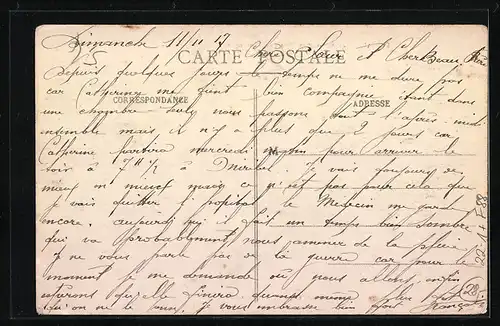 Dimanche 11/11 17
Chère Sœur et Cher Beau frère
CARTE POSTALE
Depuis quelques jours le temps ne me dure pas
car Catherine me tient bien compagnie étant dans
CORRESPONDANCE
ADRESSE
une chambre nous passons l'après-midi
ensemble mais il n'y a plus que 2 jours car
Catherine partira mercredi matin pour arriver le
soir à 7 H 1/2 à Je vais toujours de
mieux en mieux mais ce n'est pas pour cela que
je vais quitter l'hôpital le Médecin me garde
encore. aujourd'hui il fait un temps bien sombre
qui va probablement nous ramener de la pluie
Je ne vous parle pas de la guerre car pour le
moment je me demande où nous allons enfin
esperons qu'elle finira quand même plus tôt
qu'on ne le Je vous embrasse bien fort